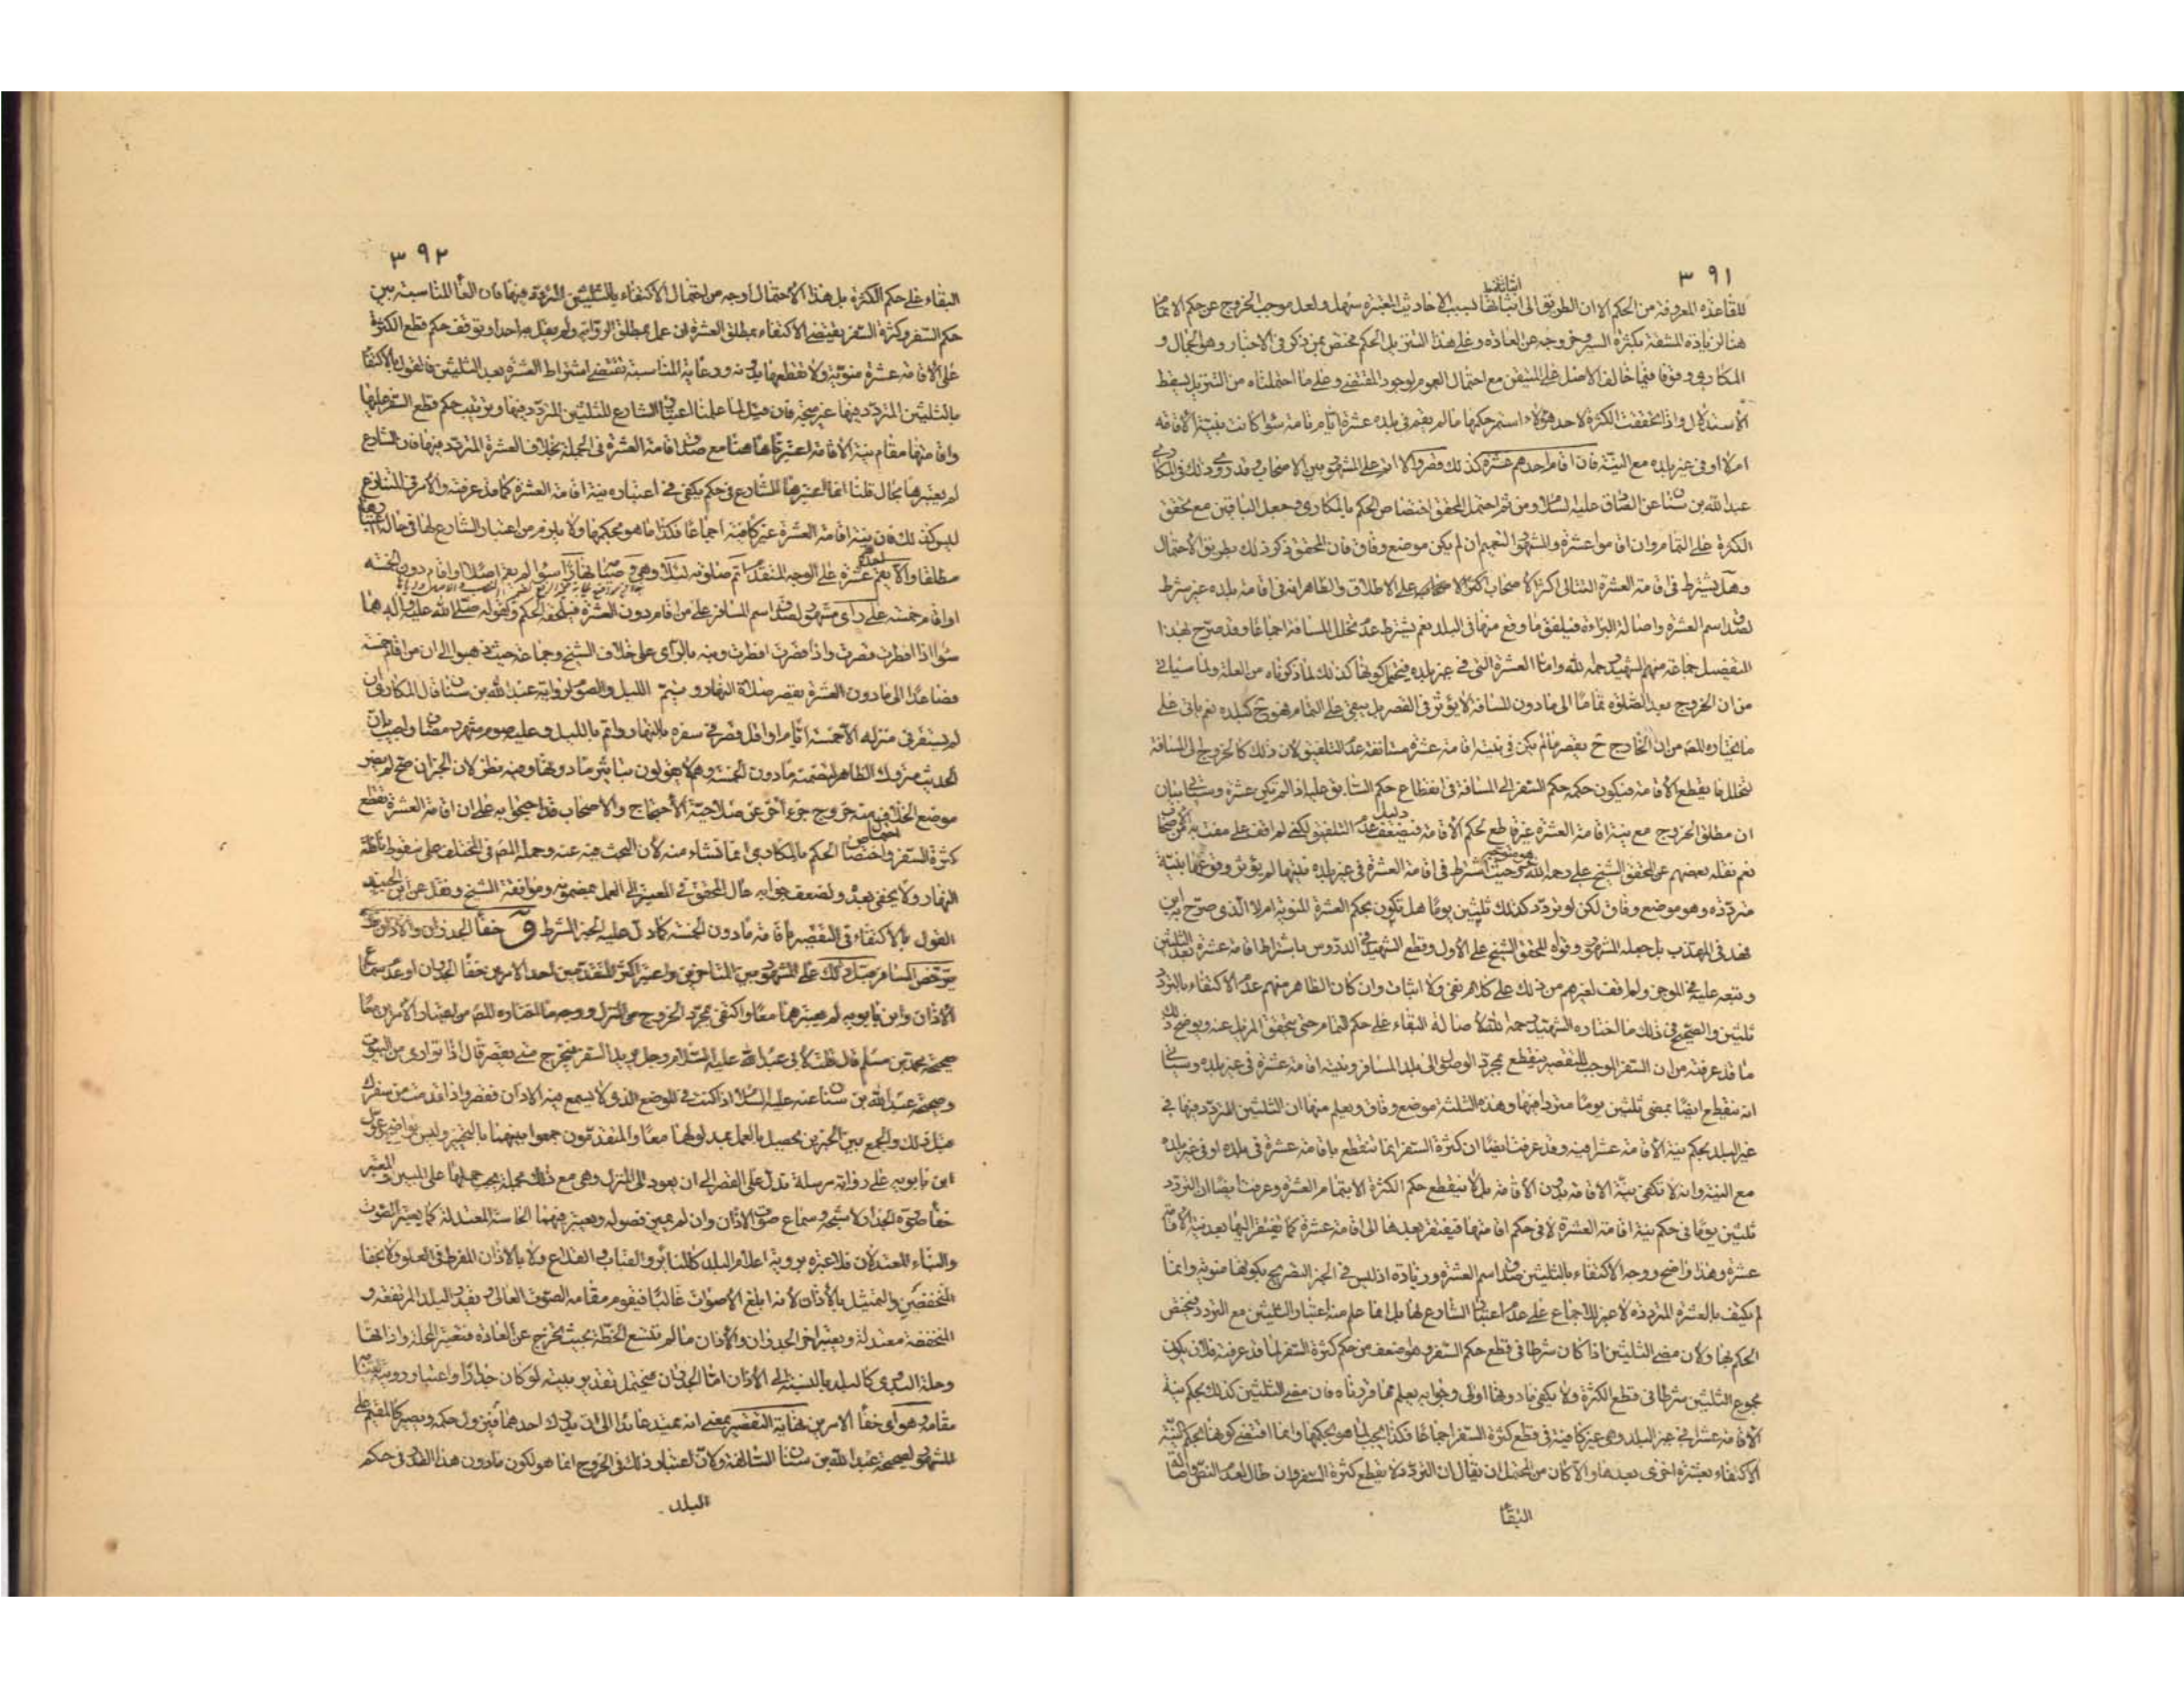 ٣٩١
للقاعدة المعروفة من الحكم الا ان الطريق الى اثباتها بسبب الاحاديث المعتبرة سهل ولعل موجب الخروج عن حكم الاتمام
هنا لزيادة المشقة بكثرة السفر وخروجه عن العادة وعلى هذا التنزيل الحكم مختص بمن ذكر في الاخبار وهو الجمال و
المكاري وقوفا فيما خالف الاصل على المتيقن مع احتمال العموم لوجود المقتضي وعلى ما احتملناه من التنزيل يسقط
الاستدلال واذا تحققت الكثرة لاحد هؤلاء استمر حكمها ما لم يقم في بلده عشرة ايام تامة سواء كانت بنية الاقامة
ام لا او في غير بلده مع النية فان اقام احدهم عشرة كذلك قصر والا اتم على المشهور بين الاصحاب وقد روى ذلك في المكاري
عبد الله بن سنان عن الصادق عليه السلام ومن ثم احتمل المحقق اختصاص الحكم بالمكاري وجعل الباقين مع تحقق
الكثرة على التمام وان اقاموا عشرة والمشهور التعميم ان لم يكن موضع وفاق فان المحقق ذكر ذلك بطريق الاحتمال
وهل يشترط في اقامة العشرة التتالي اكثر الاصحاب على الاطلاق والظاهر انه في اقامة بلده غير شرط
لصدق اسم العشرة واصالة البراءة فيلفق ما وقع منها في البلد نعم يشترط عدم تخلل المسافة اجماعا وقد صرح بهذا
التفصيل جماعة منهم الشهيد رحمه الله واما العشرة التي في غير بلده فيحتمل كونها كذلك لما ذكرناه من العلة ولما سياتي
من ان الخروج بعد الصلوة تماما الى ما دون المسافة لا يؤثر في القصر بل يبقى على التمام فهو ح كبلده نعم ياتي على
ما يختاره المصه من ان الخارج ح يقصر ما لم يكن في نيته اقامة عشرة مستانفة عدم التلفيق لان ذلك كالخروج الى المسافة
لتخلل ما يقطع الاقامة فيكون حكمه حكم السفر الى المسافة في انقطاع حكم السابق عليه اذا لم تكن عشرة وسياتي بيان
ان مطلق الخروج مع نية اقامة العشرة غير قاطع لحكم الاقامة فيضعف دليل عدم التلفيق لكني لم اقف على مفت به من الاصحاب
نعم نقله بعضهم عن المحقق الشيخ علي رحمه الله وهو متوجه حيث اشترط في اقامة العشرة في غير بلده نيتها لم يؤثر وقوعها بنية
مترددة وهو موضع وفاق لكن لو تردد كذلك ثلثين يوما هل تكون بحكم العشرة المنوية ام لا الذي صرح به ابن
فهد في المهذب بل جعله المشهور وقواه المحقق الشيخ علي الاول وقطع الشهيد في الدروس باشتراط اقامة عشرة بعد الثلثين
وتبعه عليه في الموجز ولم اقف لغيرهم من ذلك على كلام بنفي ولا اثبات وان كان الظاهر منهم عدم الاكتفاء بالتردد
ثلثين والصحيح في ذلك ما اختاره الشهيد رحمه الله لاصالة البقاء على حكم التمام حتى يتحقق المزيل عنه ويوضح ذلك
ما قد عرفته من ان السفر الموجب للتقصير ينقطع بمجرد الوصول الى بلد المسافر وبنية اقامة عشرة في غير بلده وسياتي
انه ينقطع ايضا بمضي ثلثين يوما مترددا فيها وهذه الثلثة موضع وفاق ويعلم منها ان الثلثين المتردد فيها في
غير البلد بحكم نية الاقامة عشرا فيه وقد عرفت ايضا ان كثرة السفر انما تنقطع باقامة عشرة في بلده او في غير بلده
مع النية وانه لا تكفي نية الاقامة بدون الاقامة بل لا ينقطع حكم الكثرة الا بتمام العشرة وعرفت ايضا ان التردد
ثلثين يوما في حكم نية اقامة العشرة لا في حكم اقامتها فيفتقر بعدها الى اقامة عشرة كما يفتقر اليها بعد نية الاقامة
عشرة وهذا واضح ووجه الاكتفاء بالثلثين صدق اسم العشرة وزيادة اذ ليس في الخبر التصريح بكونها منوية وانما
لم يكتف بالعشرة المترددة لا غير للاجماع على عدم اعتبار الشارع لها بل انما علم منه اعتبار الثلثين مع التردد فيختص
الحكم بها ولان مضي الثلثين اذا كان شرطا في قطع حكم السفر وهو اضعف من حكم كثرة السفر لما قد عرفته فلان يكون
مجموع الثلثين شرطا في قطع الكثرة ولا يكفي ما دونها اولى وجوابه يعلم مما قررناه فان مضي الثلثين كذلك بحكم نية
الاقامة عشرا في غير البلد وهي غير كافية في قطع كثرة السفر اجماعا فكذا يجب لما هو بحكمها وانما اقتضى كونها بحكم النية
الاكتفاء بعشرة اخرى بعدها والا كان من المحتمل ان يقال ان التردد لا يقطع كثرة السفر وان طال لعدم النص واصالة
البقاء
٣٩٢
البقاء على حكم الكثرة بل هذا الاحتمال اوجه من احتمال الاكتفاء بالثلثين المتردد فيها فان الغاء المناسبة بين
حكم السفر وكثرة السفر يقتضي الاكتفاء بمطلق العشرة لمن عمل بمطلق الرواية ولم يقل به احد او توقف حكم قطع الكثرة
على الاقامة عشرة منوية ولا تقطعها بدونه ورعاية المناسبة تقتضي اشتراط العشرة بعد الثلثين فالقول بالاكتفاء
بالثلثين المتردد فيها غير متجه فان قيل لما علمنا اعتبار الشارع للثلثين المتردد فيها وترتيب حكم قطع السفر عليها
واقامتها مقام نية الاقامة اعتبرناها هنا مع صدق اقامة العشرة في الجملة بخلاف العشرة المتردد فيها فان الشارع
لم يعتبرها بحال قلنا انما اعتبرها الشارع في حكم يكفي في اعتباره نية اقامة العشرة كما قد عرفته والامر في المتنازع
ليس كذلك فان نية اقامة العشرة غير كافية اجماعا فكذا ما هو بحكمها ولا يلزم من اعتبار الشارع لها في حالة اعتبارها
مطلقا والا يقم احدهم عشرة على الوجه المتقدم اتم صلوته ليلا وهي في ونهارا سواء لم يقم اصلا او اقام دون الخمسة
او اقام خمسة على راى مشهور لصدق اسم المسافر على من اقام دون العشرة فيلحقه الحكم وكقوله صلى الله عليه واله هما
سواء اذا افطرت قصرت واذا قصرت افطرت ونبه بالراى على خلاف الشيخ وجماعة حيث ذهبوا الى ان من اقام خمسة
فصاعدا الى ما دون العشرة يقصر صلاة النهار ويتم الليل والصوم لرواية عبد الله بن سنان قال المكاري ان
لم يستقر في منزله الا خمسة ايام او اقل قصر في سفره بالنهار واتم بالليل وعليه صوم شهر رمضان واجيب بان
الحديث متروك الظاهر لتضمنه ما دون الخمسة وهم لا يقولون بتاثير ما دونها وفيه نظر لان الخبر ان صح لم يضر
موضع الخلاف منه خروج جزء اخر عن صلاحية الاحتجاج والاصحاب قد احتجوا به على ان اقامة العشرة تقطع
كثرة السفر واحتمال اختصاص الحكم بالمكاري انما نشاء منه لان البحث فيه عنه وحمله المصه في المختلف على سقوط نافلة
النهار ولا يخفى بعده ولضعف جوابه مال المحقق في المعتبر الى العمل بمضمونه وموافقة الشيخ ونقل عن ابن الجنيد
القول بالاكتفاء في التقصير باقامة ما دون الخمسة كما دل عليه الخبر الشرط و خفاء الجدران والاذان فلا
يترخص المسافر قبل ذلك على المشهور بين المتاخرين واعتبر اكثر المتقدمين احد الامرين خفاء الجدران او عدم سماع
الاذان وابن بابويه لم يعتبرهما معا واكتفى بمجرد الخروج من المنزل ووجه ما اختاره المصه من اعتبار الامرين معا
صحيحة محمد بن مسلم قال قلت لابي عبد الله عليه السلام رجل يريد السفر فيخرج متى يقصر قال اذا توارى من البيوت
وصحيحة عبد الله بن سنان عنه عليه السلام اذا كنت في الموضع الذي لا تسمع فيه الاذان فقصر واذا قدمت من سفرك
مثل ذلك والجمع بين الخبرين يحصل بالعمل بمدلولهما معا والمتقدمون جمعوا بينهما بالتخيير وليس بواضح وعول
ابن بابويه على رواية مرسلة تدل على القصر الى ان يعود الى المنزل وهي مع ذلك مجملة يجب حملها على المبين والمعتبر
خفاء صورة الجدار لا شبحه وسماع صوت الاذان وان لم يميز فصوله ويعتبر فيهما الحاسة المعتدلة كما يعتبر الصوت
والبناء المعتدلان فلا عبرة برؤية اعلام البلد كالمنائر والقباب والقلاع ولا بالاذان المفرط في العلو ولا بخفاء
المنخفضين والتمثيل بالاذان لانه ابلغ الاصوات غالبا فيقوم مقامه الصوت العالي ويقدر البلد المرتفعة و
المنخفضة معتدلة ويعتبر اخر الجدران والاذان ما لم تتسع الخطة بحيث تخرج عن العادة فتعتبر المحلة واذانها
وحلة البدوي كالبلد بالنسبة الى الاذان اما الجدران فيحتمل تقدير بيته لو كان جدارا واعتبار رؤيته لقيامه
مقامه وهو اى خفاء الامرين نهاية التقصير بمعنى انه يمتد عائدا الى ان يدرك احدهما فيزول حكمه ويصير كالمقيم على
المشهور لصحيحة عبد الله بن سنان السالفة ولان اعتبار ذلك في الخروج انما هو لكون ما دون هذا القدر في حكم
البلد